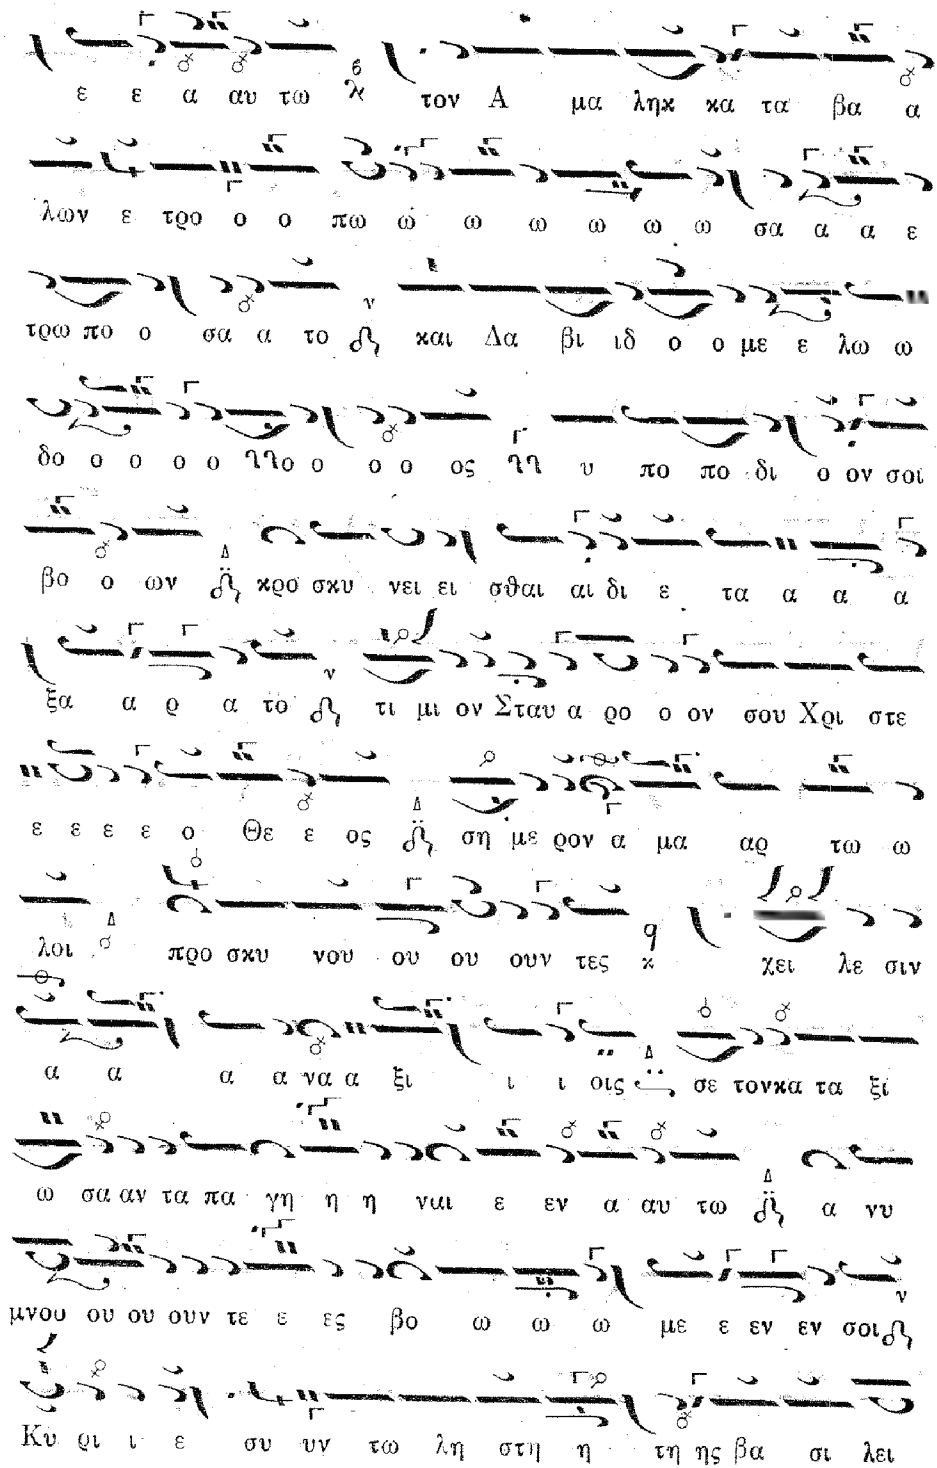 ε ε α αυ τω τον Α μα ληκ κα τα βα α
λων ε τρο ο ο πω ω ω ω ω ω ω σα α α ε
τρω πο ο σα α το και Δα βι ιδ ο ο με ε λω ω
δο ο ο ο ο ο ο ο ο ος υ πο πο δι ο ον σοι
βο ο ων κρο σκυ νει ει σθαι αι δι ε τα α α α
ξα α ρ α το τι μι ον Σταυ α ρο ο ον σου Χρι στε
ε ε ε ε ο Θε ε ος ση με ρον α μα αρ τω ω
λοι προ σκυ νου ου ου ουν τες χει λε σιν
α α α α να α ξι ι ι οις σε τον κα τα ξι
ω σα αν τα πα γη η η ναι ε εν α αυ τω α νυ
μνου ου ου ουν τε ε ες βο ω ω ω με ε εν εν σοι
Κυ ρι ι ε συ υν τω λη στη η τη ης βα σι λει